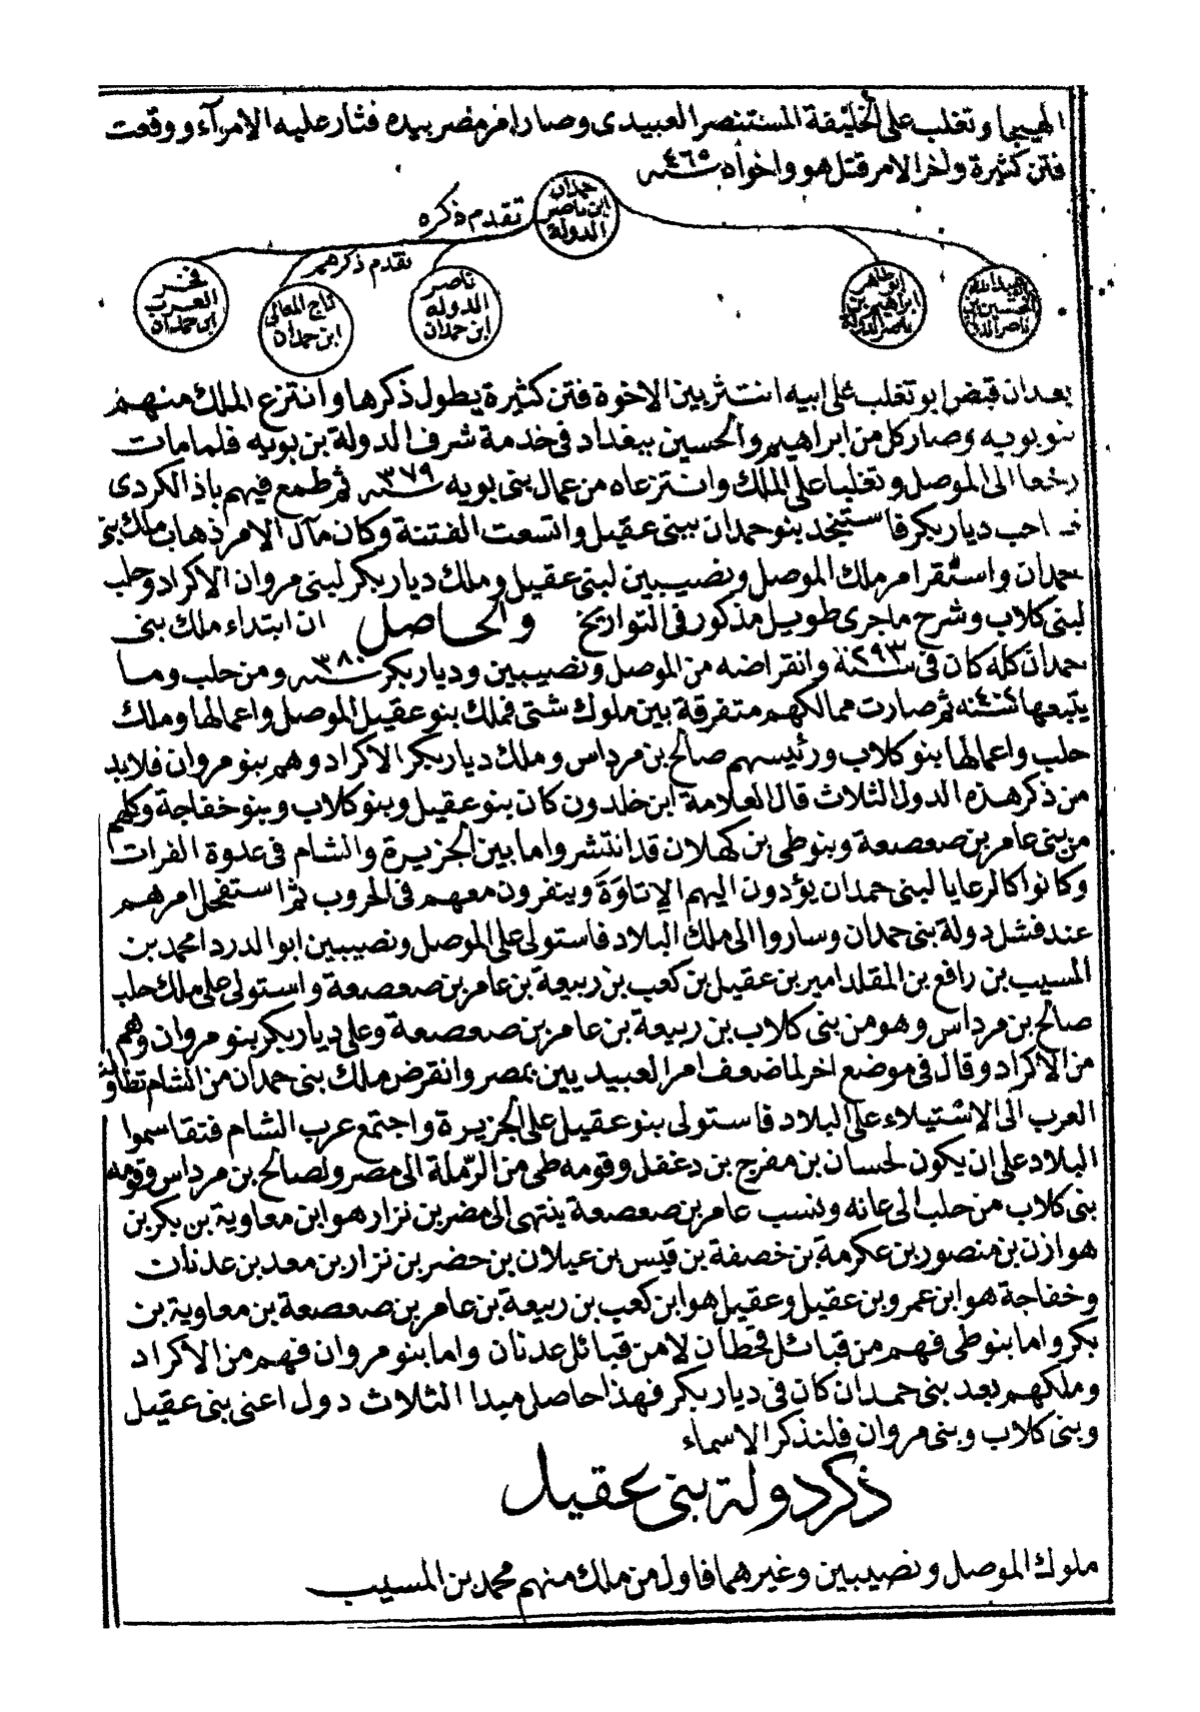 الهيجا وتغلب على الخليفة المستنصر العبيدى وصار امر مصر بيده فثار عليه الامرآء ووقعت
فتن كثيرة وآخر الامر قتل هو واخوآه سنه ٤٦٥
حمدان ابن ناصر الدولة
تقدم ذكره
تقدم ذكرهم
عبيد الله الحسين بن ناصر الدولة
ابو طاهر ابراهيم بن ناصر الدولة
ناصر الدوله ابن حمدان
تاج المعالى ابن حمدان
فخر العرب ابن حمدان
بعد ان قبض ابو تغلب على ابيه انتثر بين الاخوة فتن كثيرة يطول ذكرها وانتزع الملك منهم
بنو بويه وصار كل من ابراهيم والحسين ببغداد فى خدمة شرف الدولة بن بويه فلما مات
رجعا الى الموصل وتغلبا على الملك وانتزعاه من عمال بنى بويه سنه ٣٧٩ ثم طمع فيهم باذ الكردى
صاحب ديار بكر فاستنجد بنو حمدان ببنى عقيل واتسعت الفتنة وكان مآل الامر ذهاب ملك بنى
حمدان واستقر امر ملك الموصل ونصيبين لبنى عقيل وملك ديار بكر لبنى مروان الاكراد وحلب
لبنى كلاب وشرح ماجرى طويل مذكور فى التواريخ والحاصل ان ابتداء ملك بنى
حمدان كله كان فى سنة ٢٩٣ وانقراضه من الموصل ونصيبين وديار بكر سنه ٣٨٠ ومن حلب وما
يتبعها سنه ثم صارت ممالكهم متفرقة بين ملوك شتى فملك بنو عقيل الموصل واعمالها وملك
حلب واعمالها بنو كلاب ورئيسهم صالح بن مرداس وملك ديار بكر الاكراد وهم بنو مروان فلابد
من ذكر هذه الدول الثلاث قال العلامة ابن خلدون كان بنو عقيل وبنو كلاب وبنو خفاجة وكلهم
من بنى عامر بن صعصعة وبنو طى بن كهلان قد انتشروا مابين الجزيرة والشام فى عدوة الفرات
وكانوا كالرعايا لبنى حمدان يؤدون اليهم الإتاوَةَ وينفرون معهم فى الحروب ثم استفحل امرهم
عند فشل دولة بنى حمدان وساروا الى ملك البلاد فاستولى على الموصل ونصيبين ابو الدرداء محمد بن
المسيب بن رافع بن المقلد امير بن عقيل بن كعب بن ربيعة بن عامر بن صعصعة واستولى على ملك حلب
صالح بن مرداس وهو من بنى كلاب بن ربيعة بن عامر بن صعصعة وعلى ديار بكر بنو مروان وهم
من الاكراد وقال فى موضع اخر لما ضعف امر العبيديين بمصر وانقرض ملك بنى حمدان من الشام تطاول
العرب الى الإستيلاء على البلاد فاستولى بنو عقيل على الجزيرة واجتمع عرب الشام فتقاسموا
البلاد على ان يكون لحسان بن مفرج بن دغفل وقومه طى من الرّملة الى مصر ولصالح بن مرداس وقومه
بنى كلاب من حلب الى عانه ونسب عامر بن صعصعة ينتهى الى مضر بن نزار هو ابن معاوية بن بكر بن
هوازن بن منصور بن عكرمة بن خصفة بن قيس بن عيلان بن حضر بن نزار بن معد بن عدنان
وخفاجة هو ابن عمرو بن عقيل وعقيل هو ابن كعب بن ربيعة بن عامر بن صعصعة بن معاوية بن
بكر واما بنو طى فهم من قبائل قحطان لامن قبائل عدنان واما بنو مروان فهم من الاكراد
وملكهم بعد بنى حمدان كان فى ديار بكر فهذا حاصل مبدا الثلاث دول اعنى بنى عقيل
وبنى كلاب وبنى مروان فلنذكر الاسماء
ذكر دولة بنى عقيل
ملوك الموصل ونصيبين وغيرهما فاول من ملك منهم محمد بن المسيب